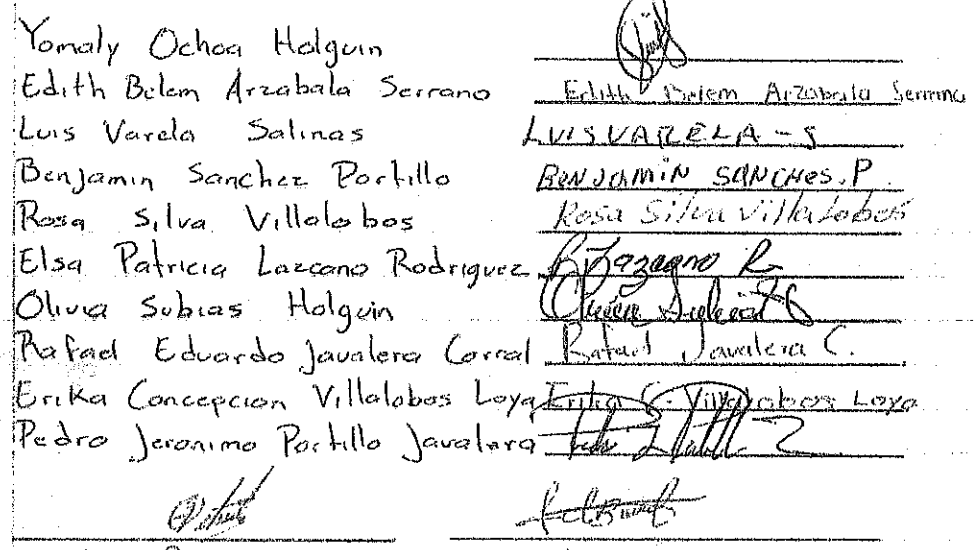 Yomaly Ochoa Holguin
Edith Belem Arzabala Serrano Edith Belem Arzabala Serrano
Luis Varela Salinas LUIS VARELA - S
Benjamin Sanchez Portillo BENJAMIN SANCHES. P.
Rosa Silva Villalobos Rosa Silva Villalobos
Elsa Patricia Lazcano Rodriguez
Olivia Subias Holguin
Rafael Eduardo Javalera Corral Rafael Javalera C.
Erika Concepcion Villalobos Loya Erika C. Villalobos Loya
Pedro Jeronimo Portillo Javalera